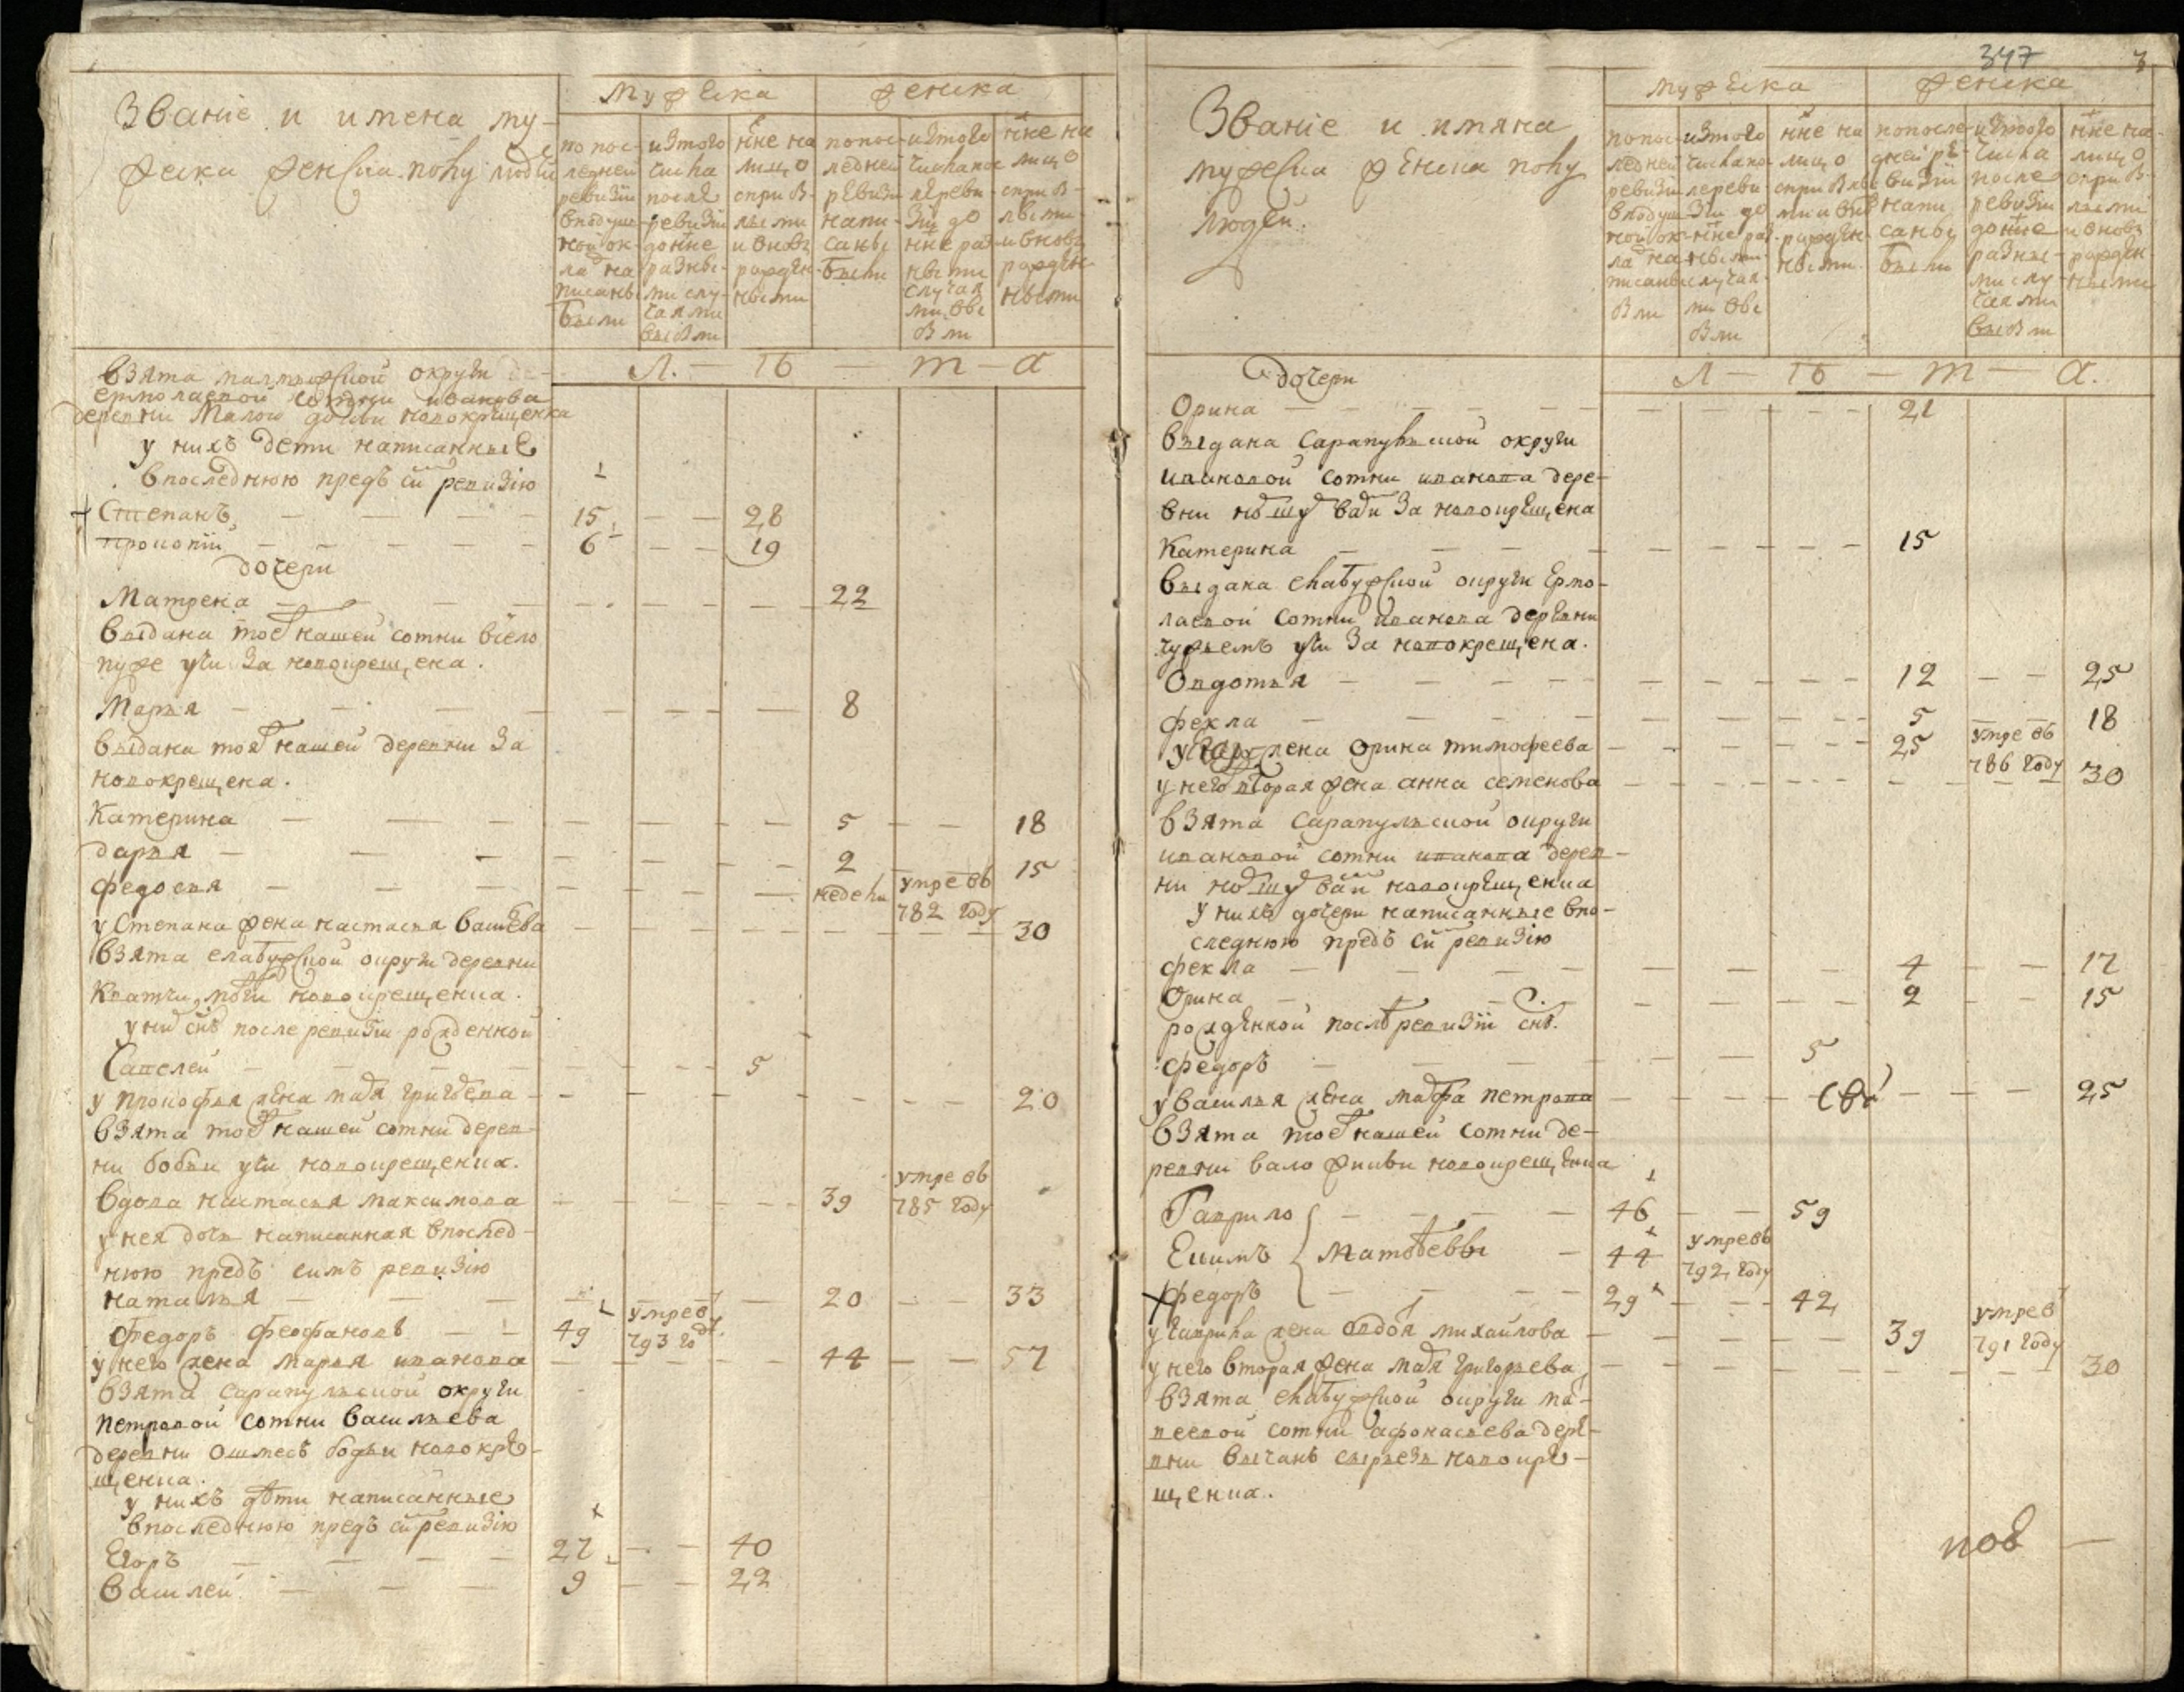 Званiе и имена му-
жеска женска полу людей
мужеска
женска
по пос-
ледней
ревизiи
в подуш-
ной ок-
лад на
писаны
были
из того
числа
после
ревизiи
до ныне
разны-
ми слу-
чаями
выбыли
ныне на
лицо
с прибы-
лыми
и вновь
рожден-
ными
по пос-
ледней
ревизи
напи-
саны
были
из того
числа пос-
ле реви-
зiи до
ныне раз-
ными
случая
ми выбы
ли
ныне на
лицо
с прибы-
лыми
и вновь
рожден
ными
Л. — Ѣ — т — а
взята малмыжской округи де-
ермолаевой сотни иванова
деревни Малой новокрещенка
у нихъ дети написанные
в последнюю предъ сей ревизiю
Степанъ — 15 — — 28
Прокопiй — 6 — — 19
дочери
Матрена — 22
выдана тоеж нашей сотни
пужеучи за новокрещена.
Марья — 8
выдана тояж нашей деревни за
новокрещена.
Катерина — 5 — — 18
дарья — 2 — — 15
федосья — недели умре въ
782 году
у Степана жена настасья васильева — 30
взята елабужской округи деревни
новокрещенка.
у них снъ после ревизiи рожденной
Савелей — 5
у прокофья жена мадя григорьева — 20
взята тоеж нашей сотни дерев-
ни бобьи учи новокрещенка.
вдова настасья максимова — 39 умре въ
785 году
у нея дочь написанная в послед-
нюю предъ симъ ревизiю
наталья — 20 — — 33
Федоръ Феофановъ — 49 умре в
793 год
у него жена марья иванова — 44 — — 57
взята сарапульской округи
петровой сотни васильева
деревни ошмесъ бодьи новокре-
щенка.
у нихъ дѣти написанные
в последнюю предъ сей ревизiю
Егоръ — 27 — — 40
василей — 9 — — 22
347
Званiе и имяна
мужеска женска полу
людей.
мужеска
женска
по пос-
ледней
ревизiи
в подуш-
ной ок-
лад на
писаны
были
из того
числа по-
сле реви-
зiи до
ныне раз-
ными
случая-
ми выбы
ли
ныне на
лицо
с прибылы
ми и внов
рожден-
ными.
по после-
дней ре-
визiи
напи
саны
были
из того
числа
после
ревизiи
до ныне
разны-
ми слу
чаями
выбыли
ныне на-
лицо
с прибы-
лыми
и вновь
рожден
ными
Л — Ѣ — т — а.
дочери
Орина — 21
выдана Сарапульской округи
ивановой сотни иванова дере-
вни за новокрещена
Катерина — 15
выдана елабужской округи Ермо-
лаевой сотни иванова деревни
чужьемъ учи за новокрещена.
Овдотья — 12 — — 25
фекла — 5 — — 18
у жена орина тимофеева — 25 умре въ
786 году
у него вторая жена анна семенова — 30
взята Сарапульской округи
ивановой сотни иванова дерев-
ни новокрещенка
у нихъ дочери написанные в по-
следнюю предъ сей ревизiю
фекла — 4 — — 17
Орина — 2 — — 15
рожденной после ревизiи снъ.
федоръ — 5
у василья жена марфа петрова — 25
взята тоеж нашей сотни де-
ревни вало жикьи новокрещенка
Гаврило — 46 — — 59
Екимъ Матвѣевы — 44 умре въ
792 году
федоръ — 29 — — 42
у гаврила жена овдотя михайлова — 39 умре в
791 году
у него вторая жена мадя григорьева — 30
взята елабужской округи ма-
веевой сотни афонасьева дере-
вни новокре-
щенка.